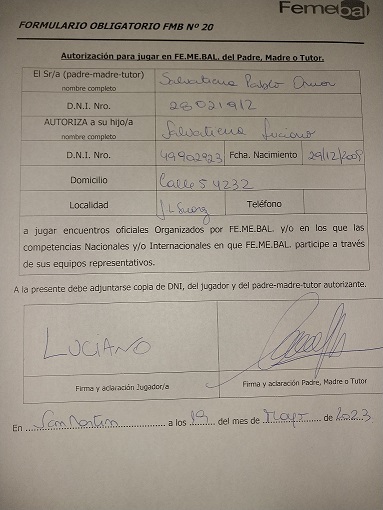 Femebal
FORMULARIO OBLIGATORIO FMB Nº 20
Autorización para jugar en FE.ME.BAL. del Padre, Madre o Tutor.
El Sr/a (padre-madre-tutor) Salvatierra Pablo Omar
nombre completo
D.N.I. Nro. 28021912
AUTORIZA a su hijo/a Salvatierra Luciano
nombre completo
D.N.I. Nro. 49902923 Fcha. Nacimiento 29/12/2008
Domicilio Calle 54 232
Localidad JL Suarez Teléfono
a jugar encuentros oficiales Organizados por FE.ME.BAL. y/o en los que las
competencias Nacionales y/o Internacionales en que FE.ME.BAL. participe a través
de sus equipos representativos.
A la presente debe adjuntarse copia de DNI, del jugador y del padre-madre-tutor autorizante.
LUCIANO
Firma y aclaración Jugador/a Firma y aclaración Padre, Madre o Tutor
En San Martin a los 19 del mes de Mayo de 2023